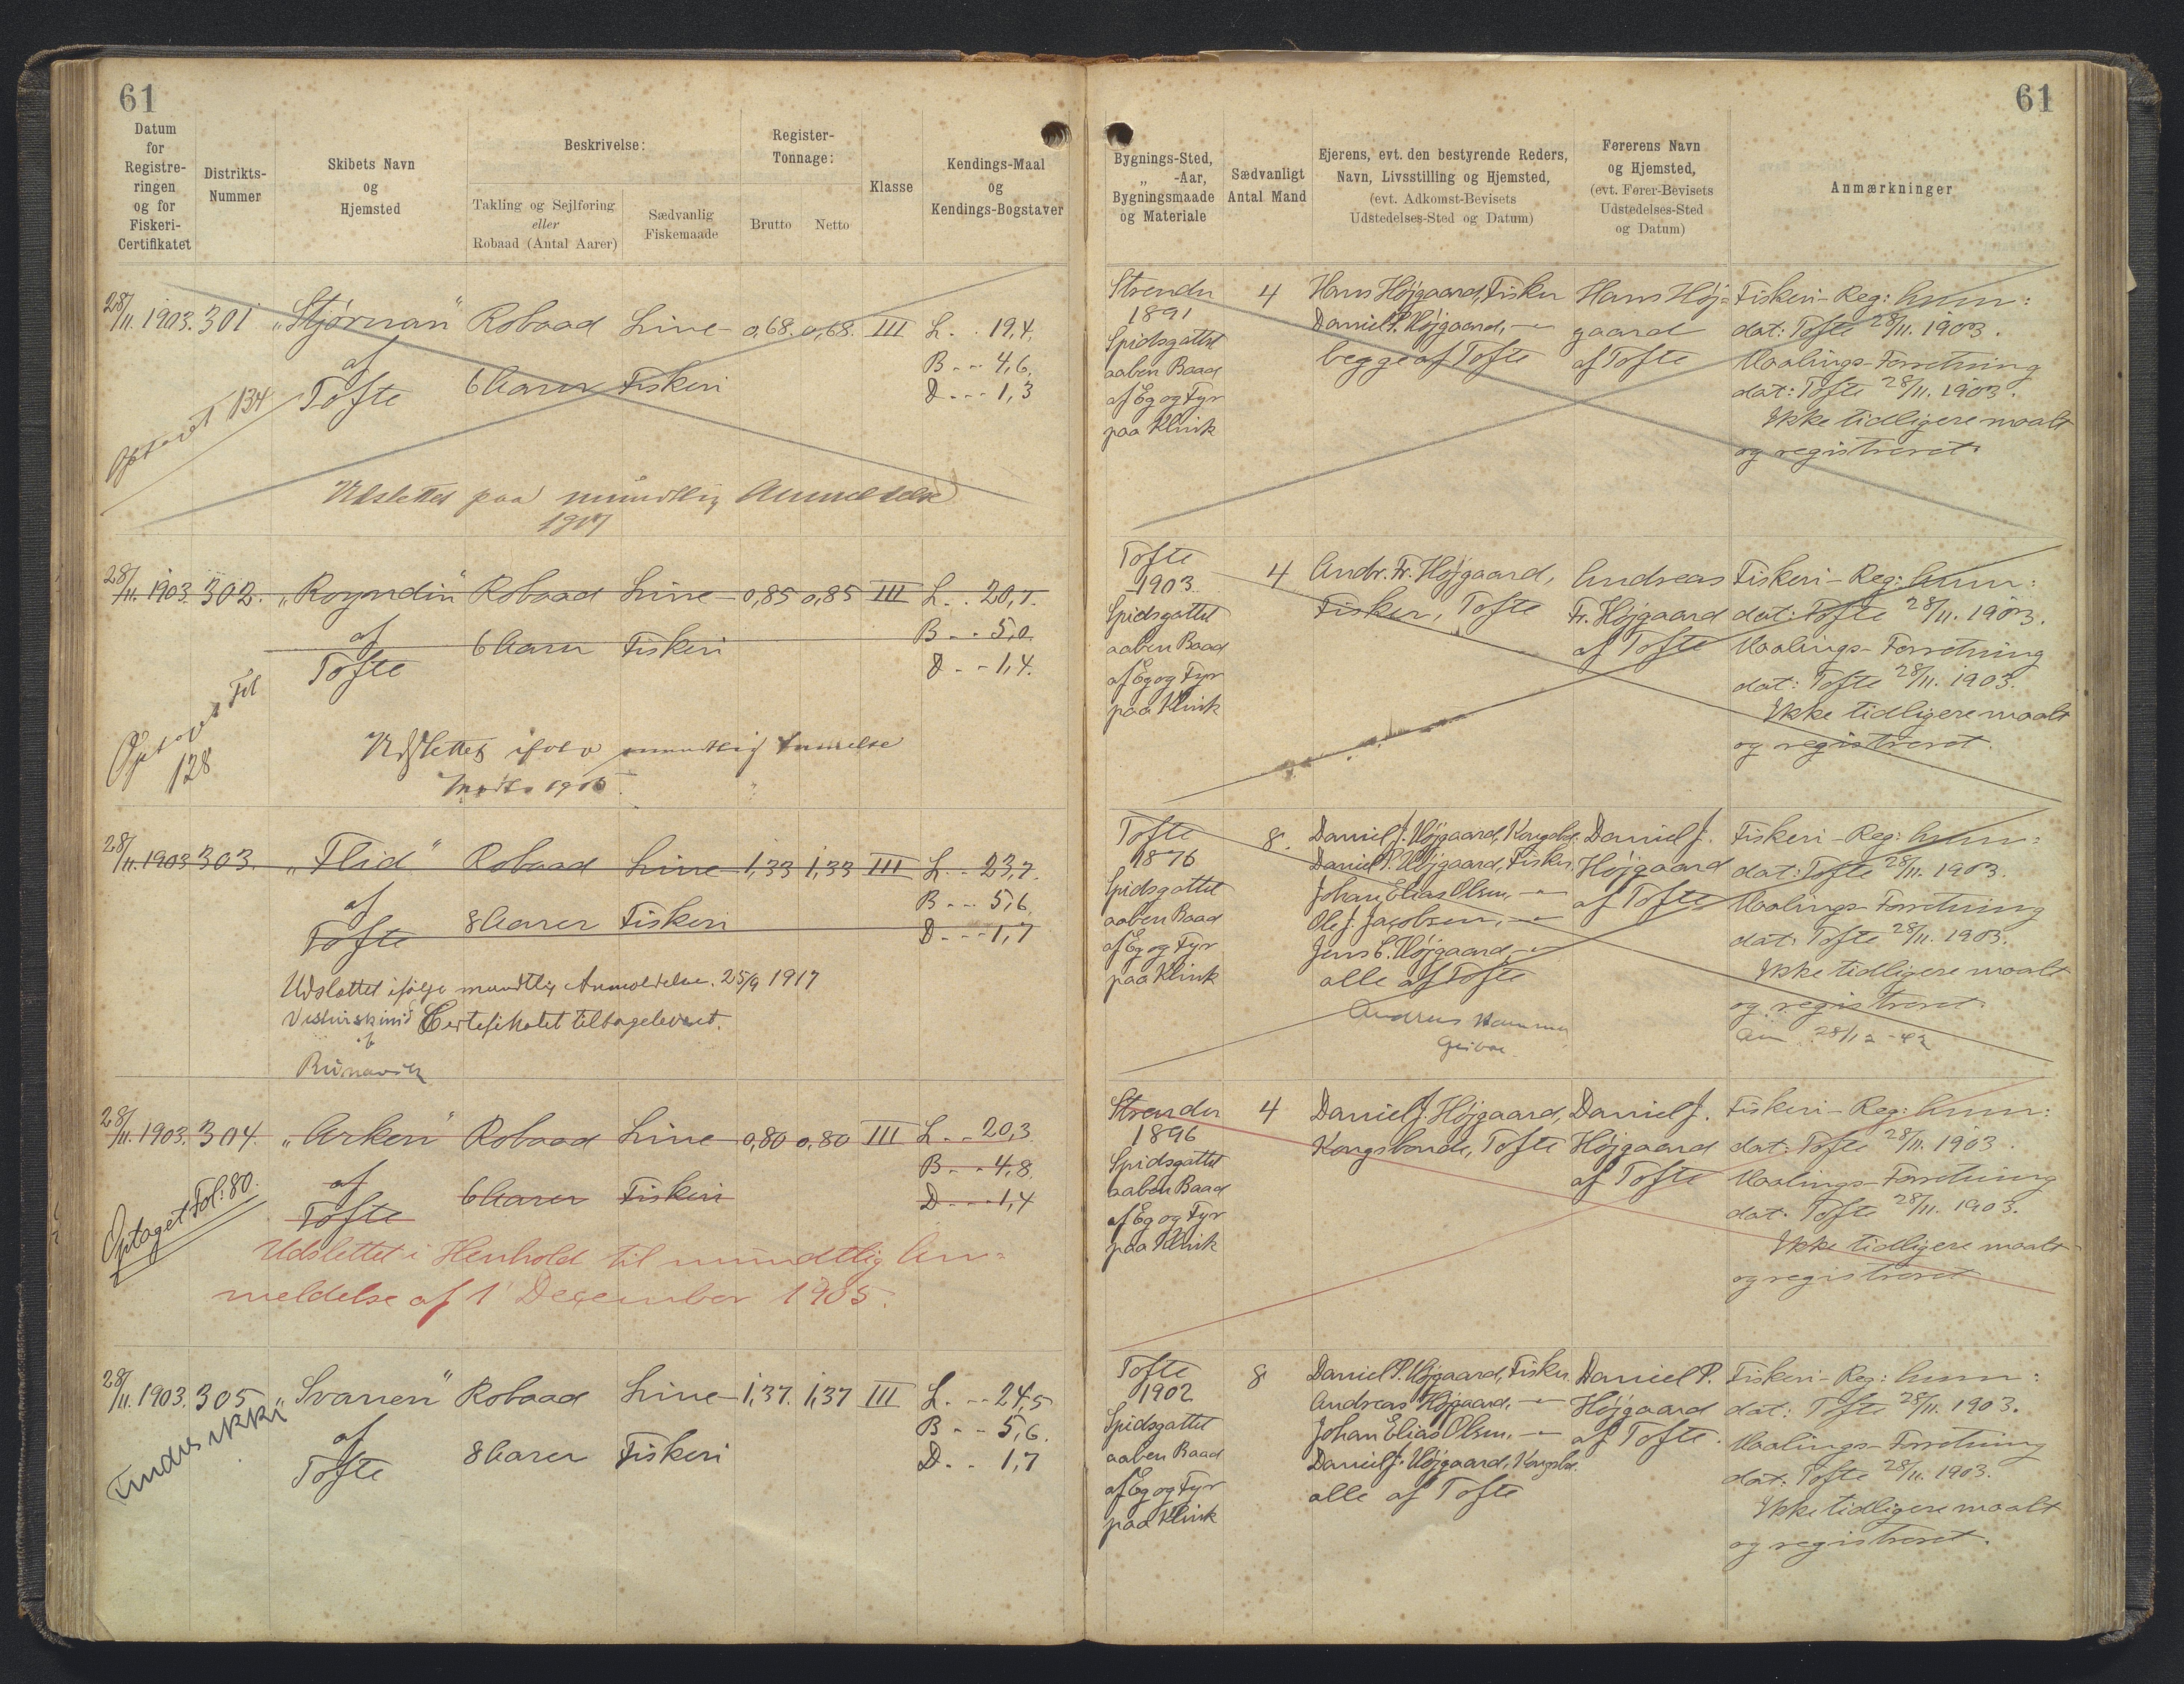 61
Datum
for
Registre-
ringen
og for
Fiskeri-
Certifikatet
Distrikts-
Nummer
Skibets Navn
og
Hjemsted
Beskrivelse:
Takling og Sejlføring
eller
Robaad (Antal Aarer)
Sædvanlig
Fiskemaade
Register-
Tonnage:
Brutto Netto
Klasse
Kendings-Maal
og
Kendings-Bogstaver
28/11. 1903. 301 „Stjörnan“ Robaad Line- 0,68. 0,68. III L. . 19,4.
af B - - 4,6.
Tofte 6 Aarer Fiskeri D - - - 1,3
134
Udslettet paa mündtlig Anmeldelse
1917
28/11. 1903. 302. „Royndin“ Robaad Line- 0,85 0,85 III L. . 20,7.
af 6 Aarer Fiskeri B - - 5,0.
Tofte D - - 1,4.
Optaget Fol
128
Udslettet mundtlig
28/11. 1903 303. „Flid“ Robaad Line- 1,33 1,33 III L. - 23,7.
af 8 Aarer Fiskeri B - - - 5,6.
Tofte D - - - 1,7
Udslettet ifølge mundtlig Anmeldelse. 25/9 1917
Certifikatet tilbageleveret.
af
Rúnavik
28/11. 1903. 304. „Arken“ Robaad Line- 0,80 0,80 III L. - - 20,3.
af B - - 4,8.
Tofte 6 Aarer Fiskeri D - - - 1,4
Optaget Fol: 80.
Udslettet i Henhold til mundtlig An=
meldelse af 1' December 1905.
28/11. 1903. 305 „Svanen“ Robaad Line- 1,37. 1,37 III L. - - 24,5
af B - - 5,6.
Tofte 8 Aarer Fiskeri D. - . 1,7
Findes ikki
61
Bygnings-Sted,
„ -Aar,
Bygningsmaade
og Materiale
Sædvanligt
Antal Mand
Ejerens, evt. den bestyrende Reders,
Navn, Livsstilling og Hjemsted,
(evt. Adkomst-Bevisets
Udstedelses-Sted og Datum)
Førerens Navn
og Hjemsted,
(evt. Fører-Bevisets
Udstedelses-Sted
og Datum)
Anmærkninger
Strender
1891
Spidsgattet
aaben Baad
af Eg og Fyr
paa Klink
4
Hans Højgaard, Fisker
Daniel P. Højgaard, -"-
begge af Tofte
Hans Høj=
gaard
af Tofte
Fiskeri-Reg: Anm:
dat: Tofte 28/11. 1903.
Maalings-Forretning
dat: Tofte 28/11. 1903.
Ikke tidligere maalt
og registreret.
Tofte
1903.
Spidsgattet
aaben Baad
af Eg og Fyr
paa Klink
4
Andr. Fr. Højgaard,
Fisker, Tofte
Andreas
Fr. Højgaard
af Tofte
Fiskeri-Reg: Anm:
dat: Tofte 28/11. 1903.
Maalings-Forretning
dat: Tofte 28/11. 1903.
Ikke tidligere maalt
og registreret.
Tofte
1876
Spidsgattet
aaben Baad
af Eg og Fyr
paa Klink
8.
Daniel J. Højgaard, Kongsbd.
Daniel P. Højgaard, Fisker.
Johan Elias Olsen, -"-
Ole J. Jacobsen, -"-
Jens C. Højgaard, -"-
alle af Tofte
Daniel J.
Højgaard
af Tofte
Fiskeri-Reg: Anm:
dat: Tofte 28/11. 1903.
Maalings-Forretning
dat: Tofte 28/11. 1903.
Ikke tidligere maalt
og registreret.
28/12 - 42
Strender
1896
Spidsgattet
aaben Baad
af Eg og Fyr
paa Klink
4
Daniel J. Højgaard,
Kongsbonde, Tofte
Daniel J.
Højgaard
af Tofte
Fiskeri-Reg: Anm:
dat: Tofte 28/11. 1903.
Maalings-Forretning
dat. Tofte 28/11. 1903.
Ikke tidligere maalt
og registreret
Tofte
1902
Spidsgattet
aaben Baad
af Eg og Fyr
paa Klink
8
Daniel P. Højgaard, Fisker.
Andreas Højgaard, -"-
Johan Elias Olsen, -"-
Daniel J. Højgaard, Kongsbd.
alle af Tofte
Daniel P.
Højgaard
af Tofte.
Fiskeri-Reg: Anm:
dat: Tofte 28/11. 1903.
Maalings-Forretning
dat: Tofte 28/11. 1903.
Ikke tidligere maalt
og registreret.